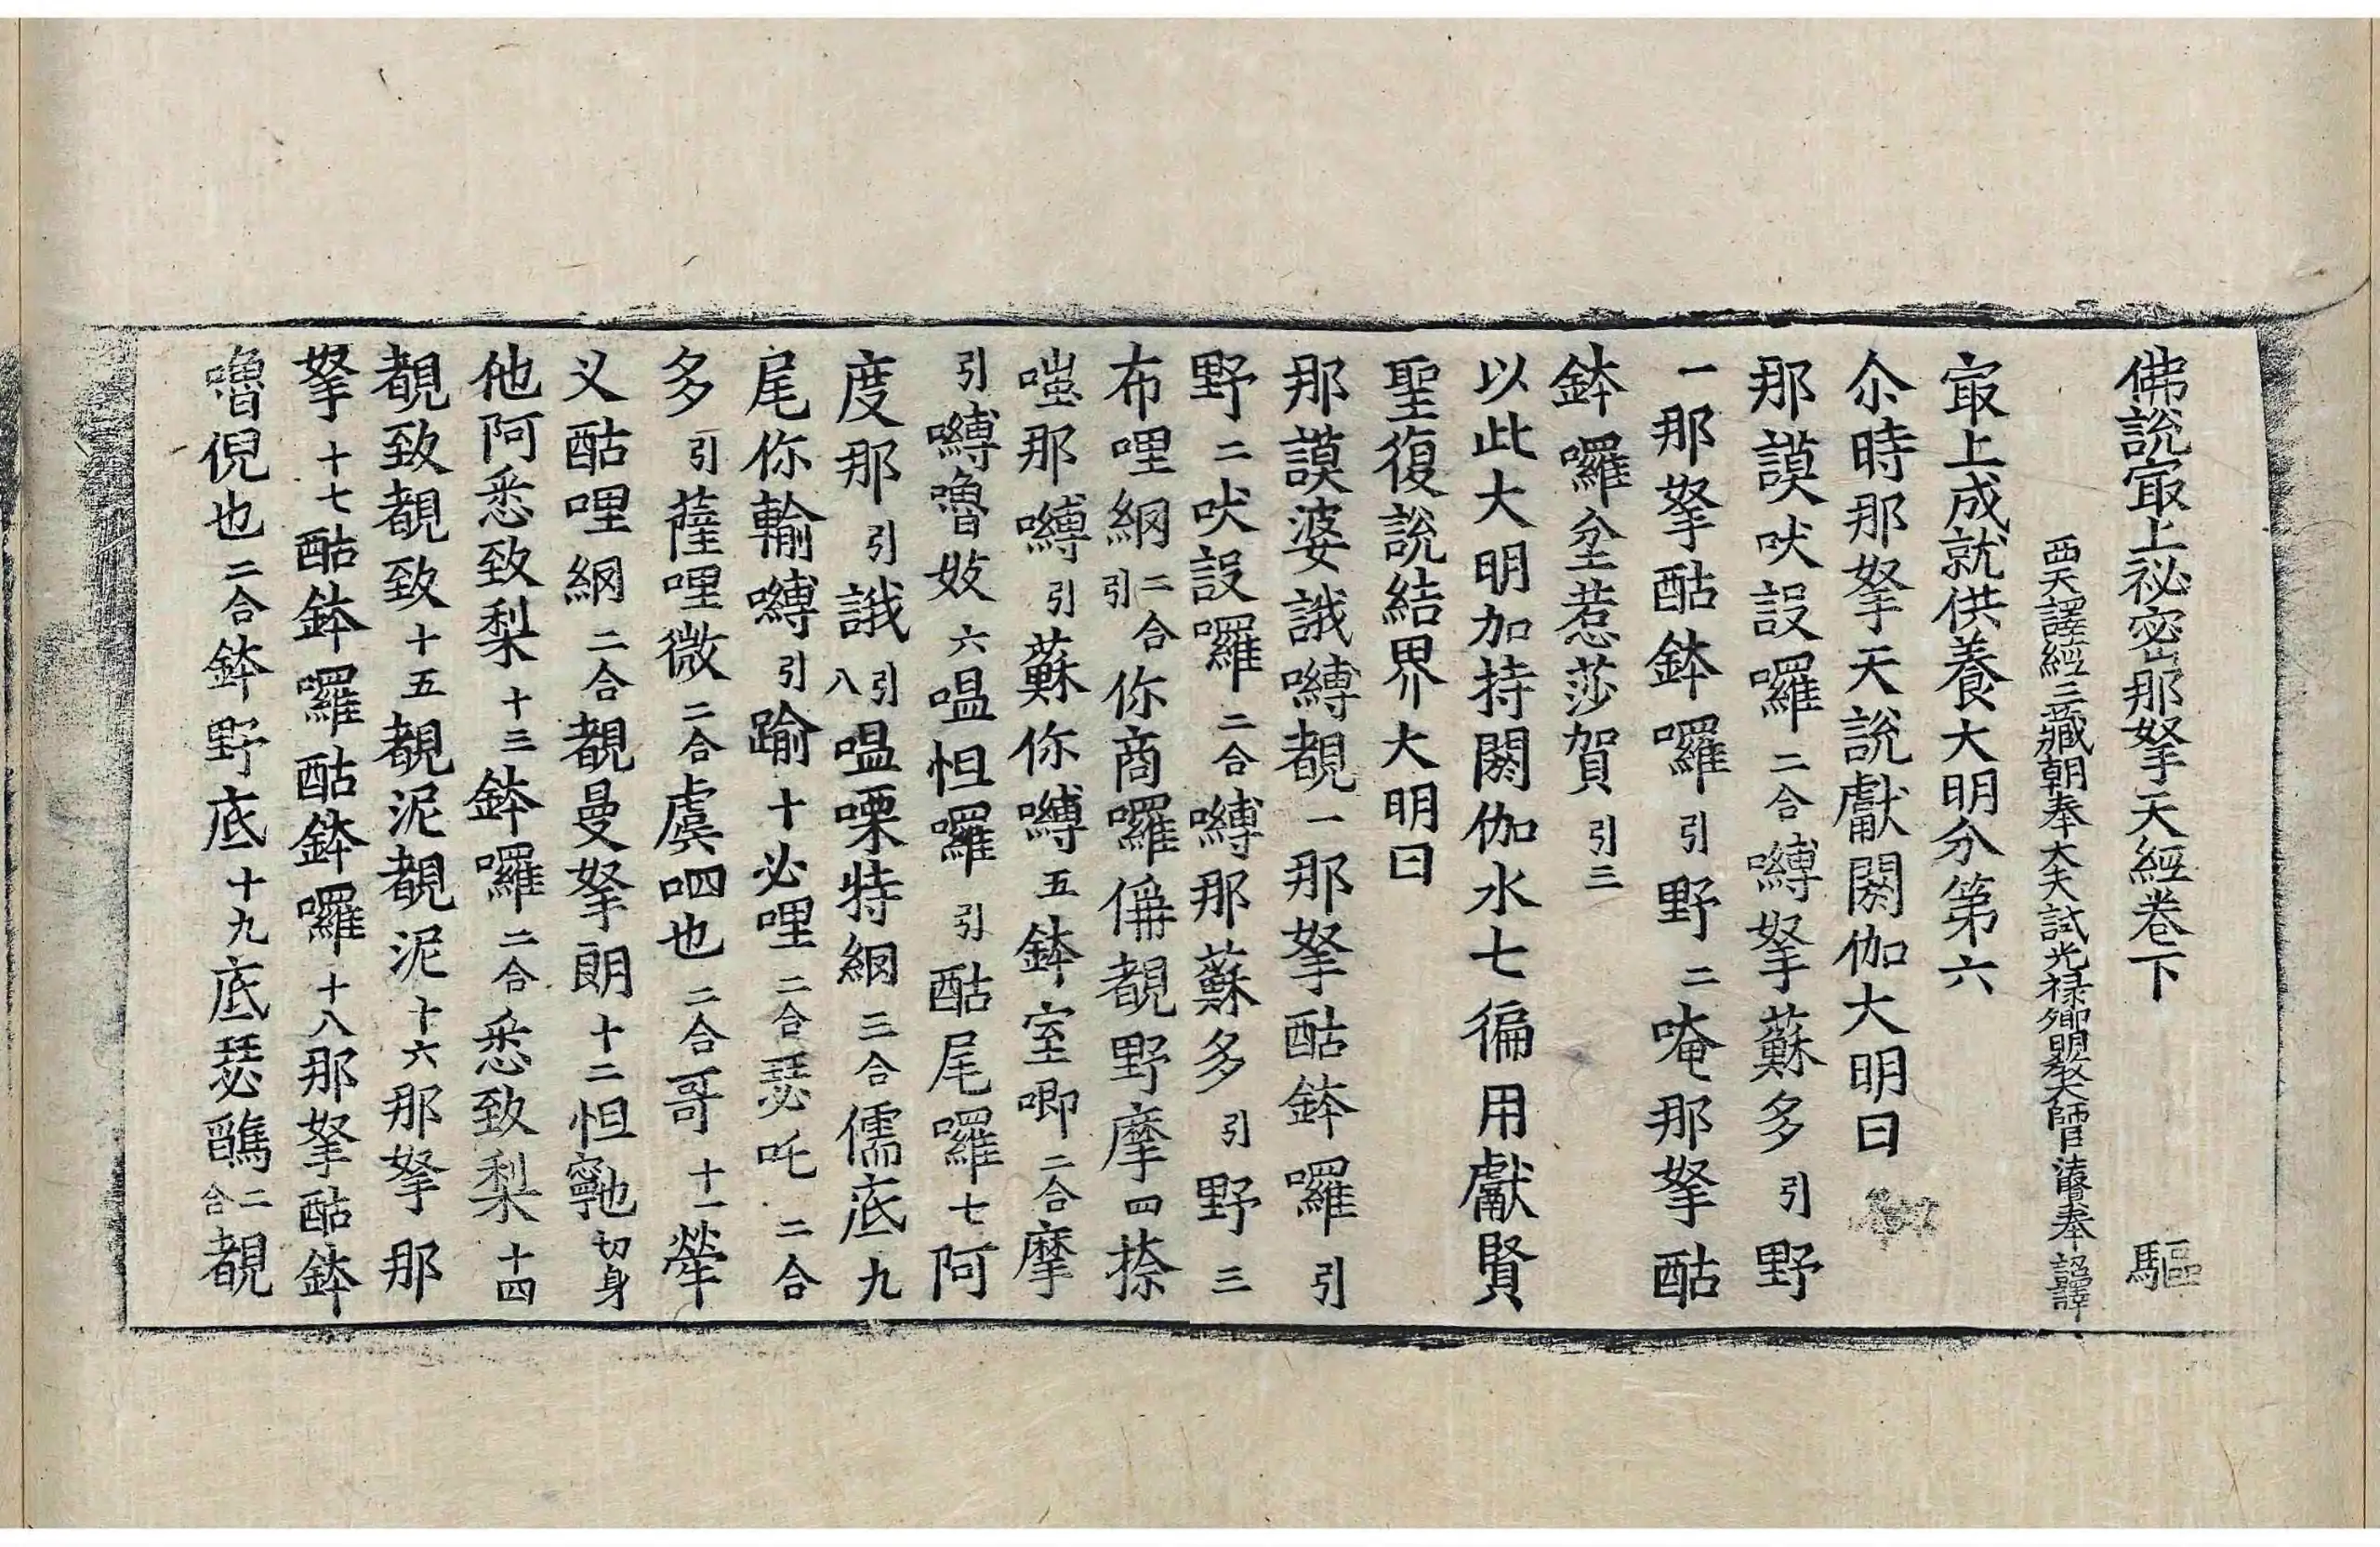 佛說寂上祕密那拏天經卷下 驅
西天譯經三藏朝奉大夫試光祿卿明教大師臣法賢奉 詔譯
寂上成就供養大明分第六
尒時那拏天說獻閼伽大明曰
那謨吠設囉二合嚩拏蘇多引野
一那拏酤鉢囉引野二唵那拏酤
鉢囉坌惹莎賀引三
以此大明加持閼伽水七徧用獻賢
聖復說結界大明曰
那謨婆誐嚩覩一那拏酤鉢囉引
野二吠設囉二合嚩那蘇多引野三
布哩網二合引你商囉僞覩野摩四捺
㘕那嚩引蘇你嚩五鉢室唧二合摩
引嚩嚕妓六嗢怛囉引酤尾囉七阿
度那引誐引八嗢㗚特網三合儒底九
尾你輸嚩引踰十必哩二合瑟吒二合
多引薩哩微二合虞呬也二合哥十一犖
义酤哩網二合覩曼拏朗十二怛寧也切身
他阿悉致梨十三鉢囉二合悉致梨十四
覩致覩致十五覩泥覩泥十六那拏那
拏十七酤鉢囉酤鉢囉十八那拏酤鉢
嚕倪也二合鉢野底十九底瑟鷦二合覩